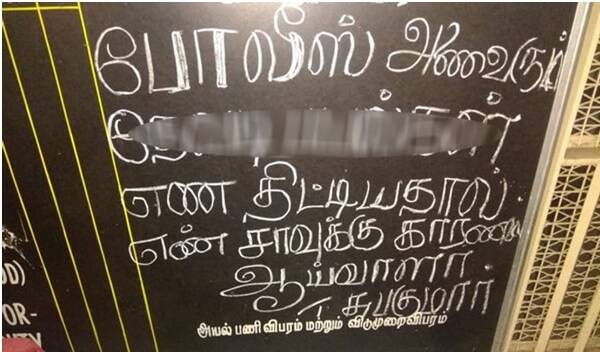 போலீஸ் அணவரும்
என திட்டியதால்
என் சாவுக்கு காரணம்
ஆய்வாளர்
சுபகுமார்
அயல் பணி விபரம் மற்றும் விடுமுறைவிபரம்
DD)
OR-
ITY